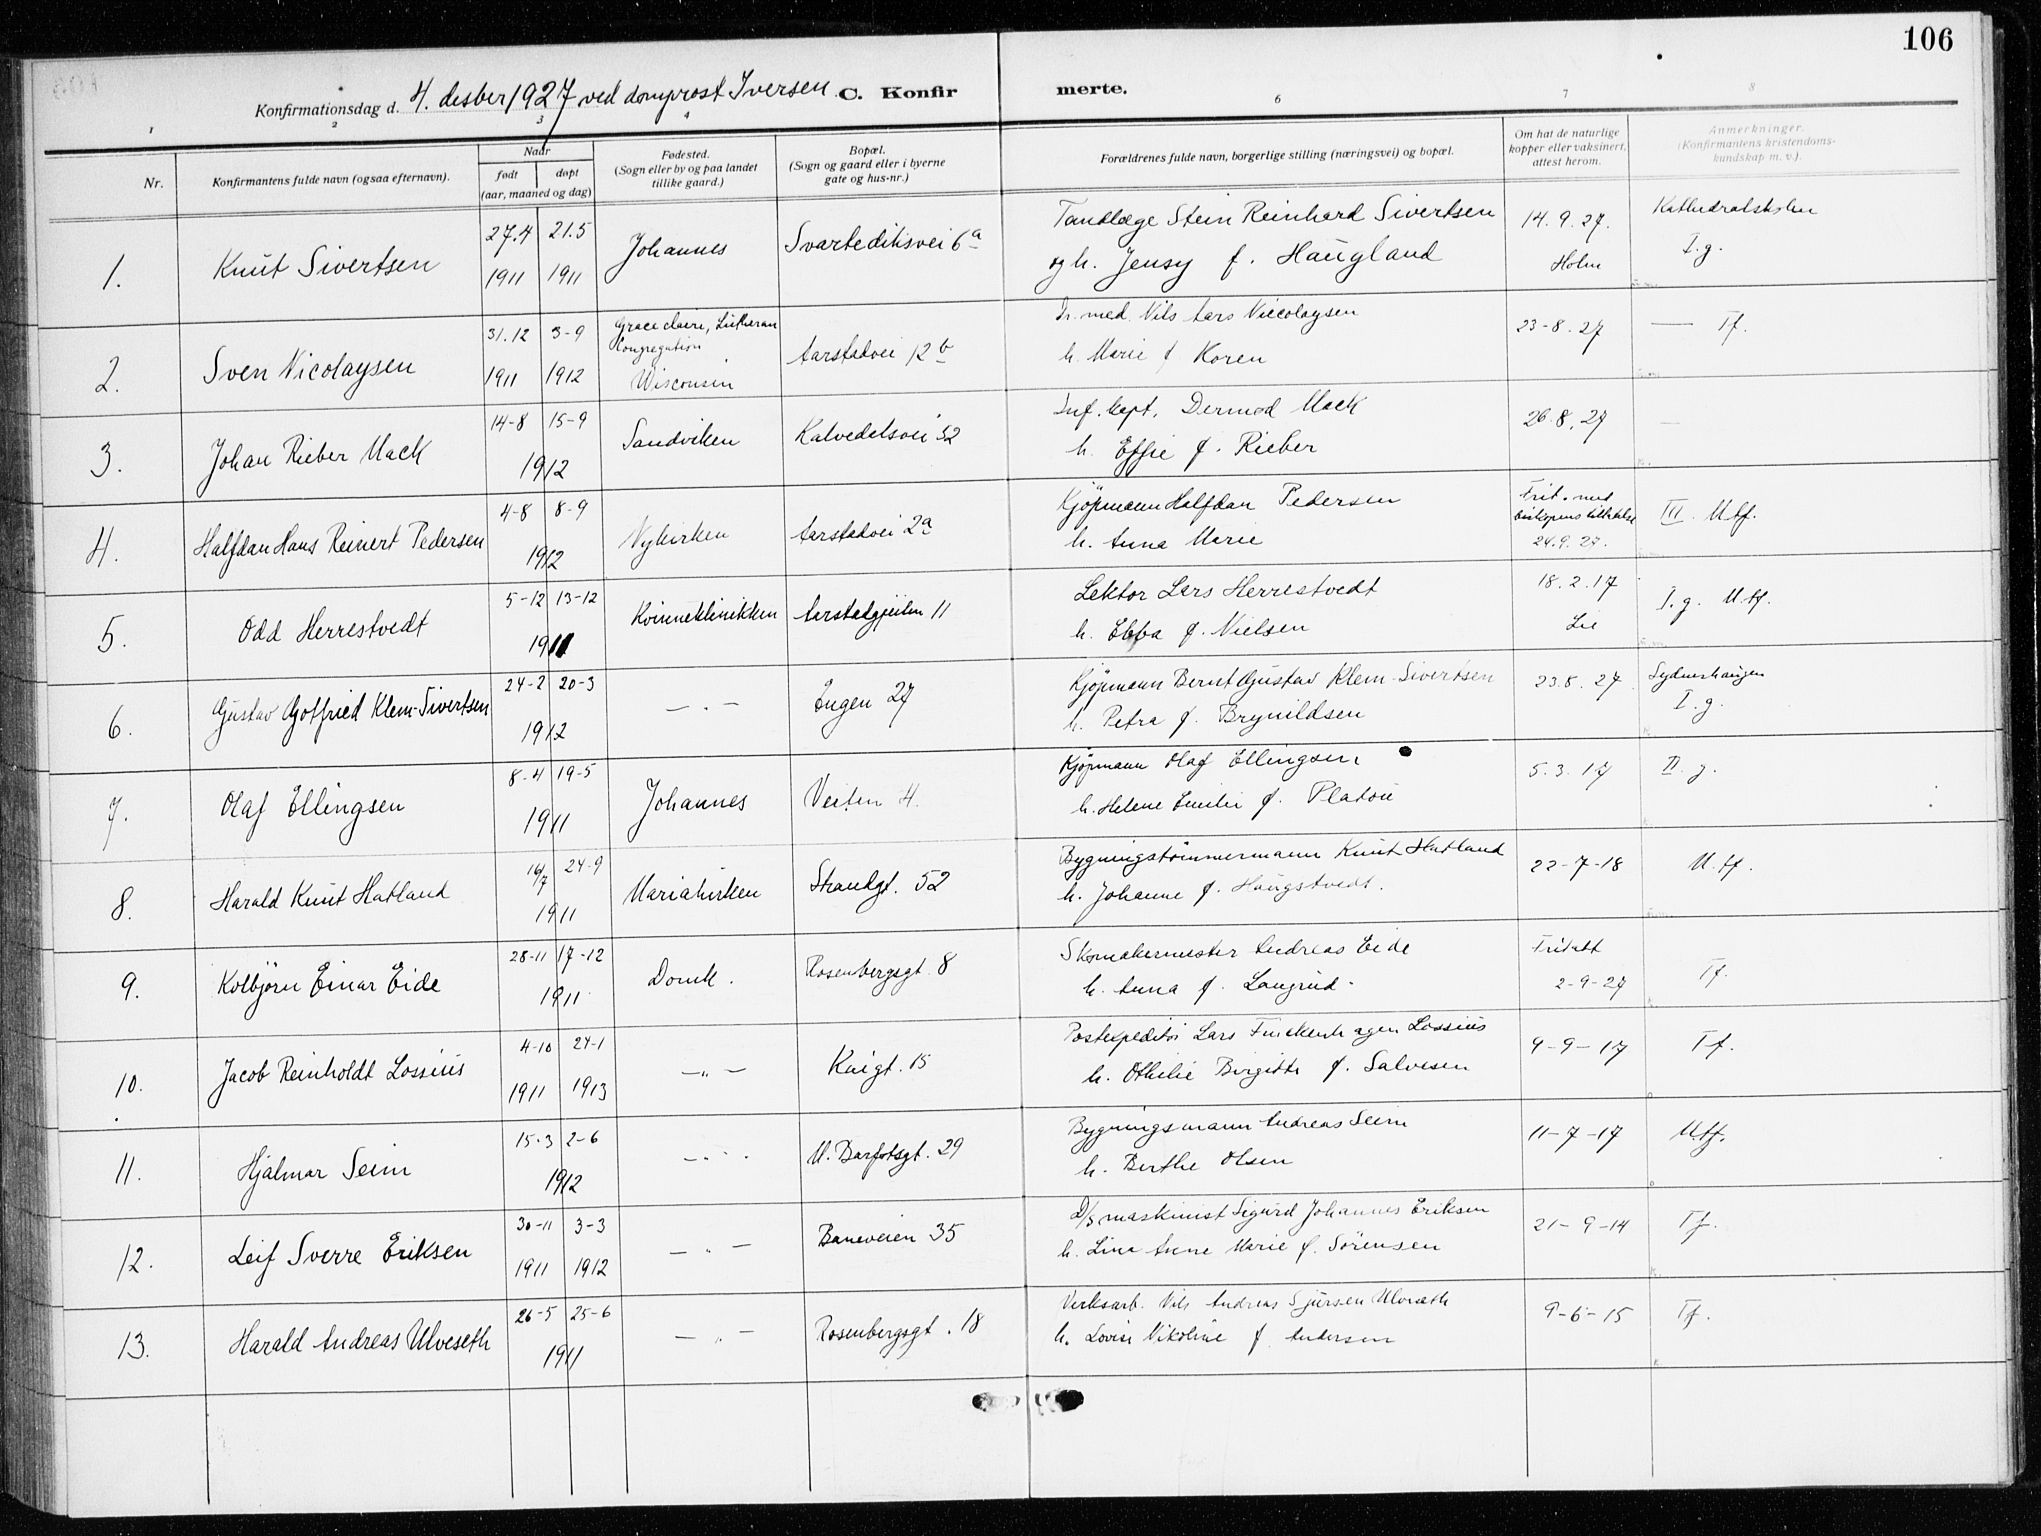 106
Konfirmationsdag d. 4. desber 1927 ved domprost Iversen C. Konfirmerte.
1 2 3 4 6 7 8
Nr. Konfirmantens fulde navn (ogsaa efternavn). Naar født døpt (aar, maaned og dag) Fødested. (Sogn eller by og paa landet tillike gaard.) Bopæl. (Sogn og gaard eller i byerne gate og hus-nr.) Forældrenes fulde navn, borgerlige stilling (næringsvei) og bopæl. Om hat de naturlige kopper eller vaksinert, attest herom. Anmerkninger. (Konfirmantens kristendomskundskap m. v.).
1. Knut Sivertsen 27.4 1911 21.5 1911 Johannes Svartediksvei 6a Tandlæge Stein Reinhard Sivertsen 14.9.27. Kathedralskolen
og h. Jensy f. Haugland Holm I.g.
2. Sven Nicolaysen 31.12 1911 3-9 1912 Grace claire, Lutheran Congregation Wisconsin Aarstadvei 12b Dr. med. Nils Aars Nicolaysen 23-8.27 — Tf.
h. Marie f. Koren
3. Johan Rieber Mack 14-8 15-9 1912 Sandviken Kalvedalsvei 52 Inf. kapt. Dermod Mack 26.8.27 —
h. Effie f. Rieber
4. Halfdan Hans Reinert Pedersen 4-8 8-9 1912 Nykirken Aarstadvei 2a Kjøpmann Halfdan Pedersen Frit. med III. Mtf.
h. Anna Marie biskopens tillatelse 24.9.27.
5. Odd Herrestvedt 5-12 13-12 1911 Kvinneklinikken Aarstadgeilen 11 Lektor Lars Herrestvedt 18.2.17 I.g. Mtf.
h. Ebba f. Nielsen Lie
6. Gustav Gotfried Klem-Sivertsen 24-2 20-3 1912 — . — Engen 27 Kjøpmann Bernt Gustav Klem-Sivertsen 23.8.27 Sydneshaugen
h. Petra f. Brynildsen I.g.
7. Olaf Ellingsen 8-4 19-5 1911 Johannes Veiten 4. Kjøpmann Olaf Ellingsen 5.3.17 II.g.
h. Helene Emilie f. Platou
8. Harald Knut Hatland 16/7 24-9 1911 Mariakirken Strandgt. 52 Bygningstømmermann Knut Hatland 22-7-18 Mtf.
h. Johanne f. Haugstvedt.
9. Kolbjørn Einar Eide 28-11 17-12 1911 Domk. Rosenbergsgt. 8 Skomakermester Andreas Eide Fritatt Tf.
h. Anna f. Langrud. 2-9-27
10. Jacob Reinholdt Lossius 4-10 1911 24-1 1913 — „ — Kaigt. 15 Postexpeditør Lars Finckenhagen Lossius 9-9-17 Tf.
h. Othilie Birgitte f. Salvesen
11. Hjalmar Seim 15.3 2-6 1912 — „ — M. Barfotsgt. 29 Bygningsmann Andreas Seim 11-7-17 Mtf.
h. Berthe Olsen
12. Leif Sverre Eriksen 30-11 1911 3-3 1912 — „ — Baneveien 35 D/s maskinist Sigurd Johannes Eriksen 21-9-14 Tf.
h. Lina Anne Marie f. Sørensen
13. Harald Andreas Ulveseth 26-5 25-6 1911 — „ — Rosenbergsgt. 18 Verksarb. Nils Andreas Sjursen Ulveseth 9-6-15 Tf.
h. Lovise Nikoline f. Andersen